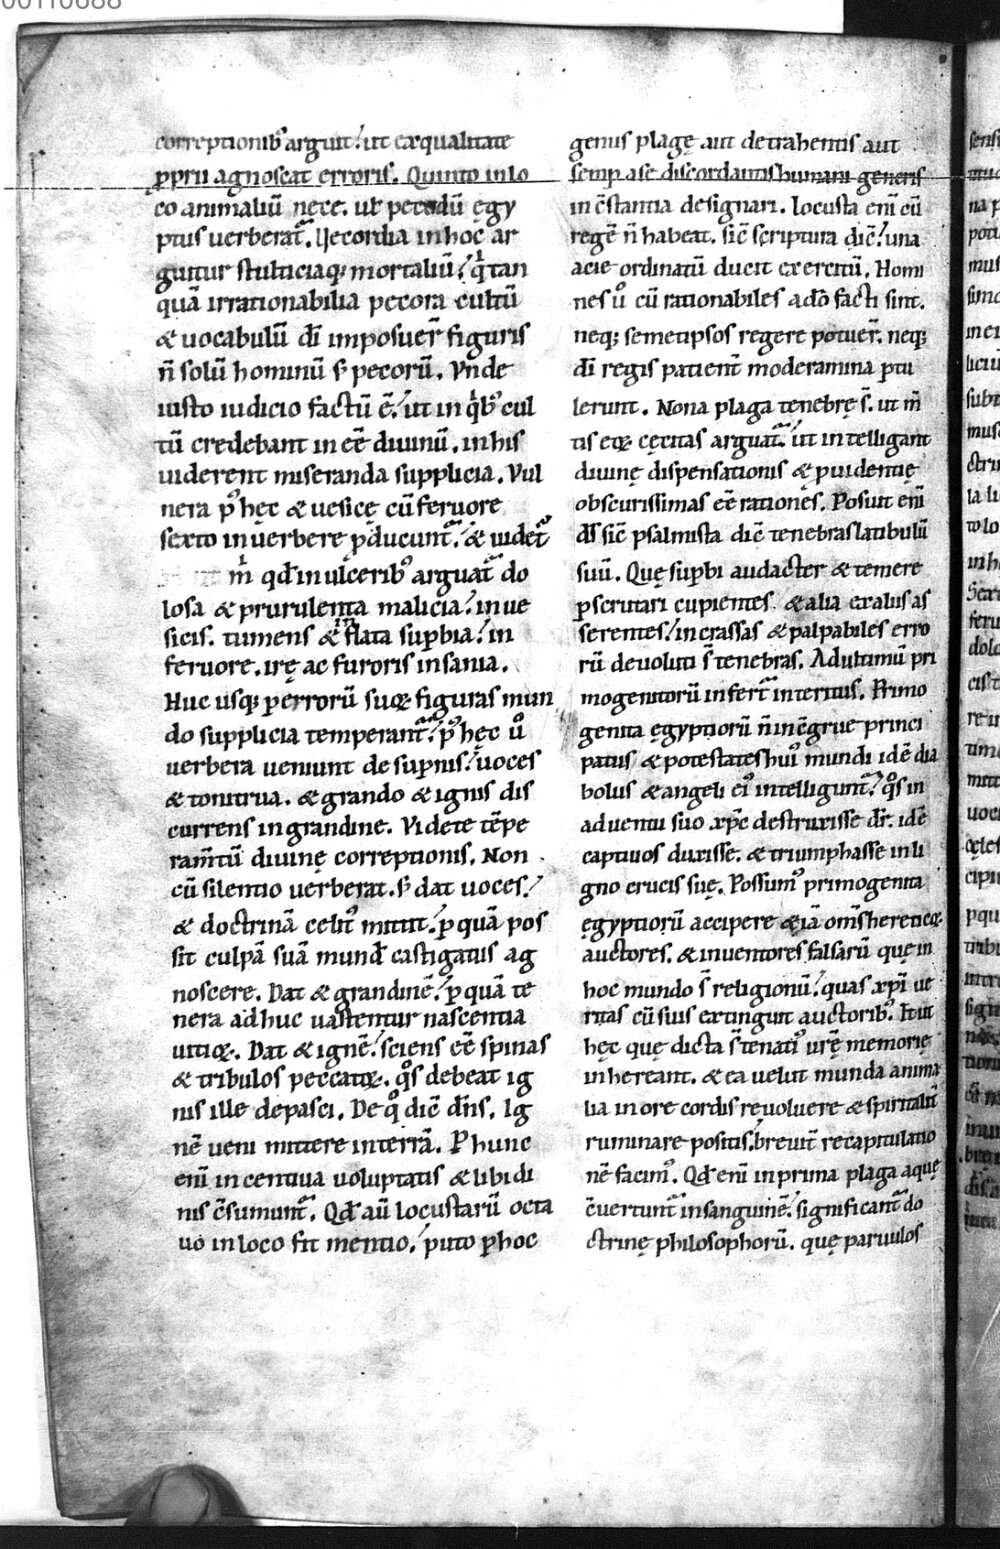 00110688
correptionib᷒ arguit. ut ex qualitate
ꝓprii agnoscat erroris. Quinto in lo
co animaliū nece. uł pecudū ęgy
ptus uerberat᷑. Uecordia in hoc ar
guitur stulticiaq; mortaliū. q̇ tan
quā irrationabilia pecora cultū
& uocabulū dī imposuer̄ figuris
ñ solū hominū s; pecorū. Vnde
iusto iudicio factū ē. ut in q̇b᷒ cul
tū credebant inēē diuinū. in his
uiderent miseranda supplicia. Vul
nera p᷒ hęc & uesicę cū feruore
sexto in uerbere ꝓducunt᷑. & uidet᷑
m̄ qđ in ulcerib᷒ arguat᷑ do
losa & prurulenta malicia. in ue
sicis. tumens & inflata supbia. in
feruore. irę ac furoris insania.
Huc usq; p errorū suoꝝ figuras mun
do supplicia temperant᷑. p᷒ hęc ů
uerbera ueniunt de supnis. uoces
& tonitrua. & grando & ignis dis
currens in grandine. Videte tēpe
ram̄tū diuinę correptionis. Non
cū silentio uerberat. s; dat uoces.
& doctrinā celit᷒ mittit. p quā pos
sit culpā suā mund᷒ castigatus ag
noscere. Dat & grandinē. p quā te
nera adhuc uastentur nascentia
uitioꝝ. Dat & ignē. sciens ēē spinas
& tribulos peccatoꝝ. q̊s debeat ig
nis ille depasci. De q̊ dic̄ dn̄s. Ig
nē ueni mittere in terrā. P hunc
enī incentiua uoluptatis & libidi
nis c̄sumunt᷑. Qđ aū locustarū octa
uo in loco fit mentio. puto p hoc
genus plagę aut detrahentis aut
semp a se discordantis humani generis
inc̄stantia designari. Locusta enī cū
regē ñ habeat. sic̄ scriptura dic̄. una
acie ordinatū ducit exercitū. Homi
nes ů cū rationabiles a dō facti sint.
neq; semetipsos regere potuer̄. neq;
dī regis patient᷑ moderamina ptu
lerunt. Nona plaga tenebrę s̄. ut m̄
tis eoꝝ cęcitas arguat᷑. ut intelligant
diuinę dispensationis & puidentię
obscurissimas ēē rationes. Posuit enī
ds̄ sic̄ psalmista dic̄ tenebras latibulū
suū. Quę supbi audacter & temere
pscrutari cupientes. & alia ex aliis as
serentes. in crassas & palpabiles erro
rū deuoluti s̄ tenebras. Ad ultimū pri
mogenitorū infert᷑ interitus. Primo
genita ęgyptiorū ñ incōgrue princi
patus & potestates hui᷒ mundi idē dia
bolus & angeli ei᷒ intelligunt᷑. q̊s in
aduentu suo xp̄c destruxisse dr̄. idē
captiuos duxisse. & triumphasse in li
gno crucis suę. Possum᷒ primogenita
ęgyptiorū accipere & iā om̄s hereticoꝝ
auctores. & inuentores falsarū que in
hoc mundo s̄ religionū. quas xp̄i ue
ritas cū suis extinguit auctorib᷒. Et ut
hęc que dicta s̄ tenati᷒ ur̄ę memorię
inhereant. & ea uelut munda anima
lia in ore cordis reuoluere & spiritalit᷑
ruminare positis. breuit᷑ recapitulatio
nē facim᷒. Qđ enī in prima plaga aquę
c̄uertunt᷑ in sanguinē. significant᷑ do
ctrinę philosophorū. quę paruulos